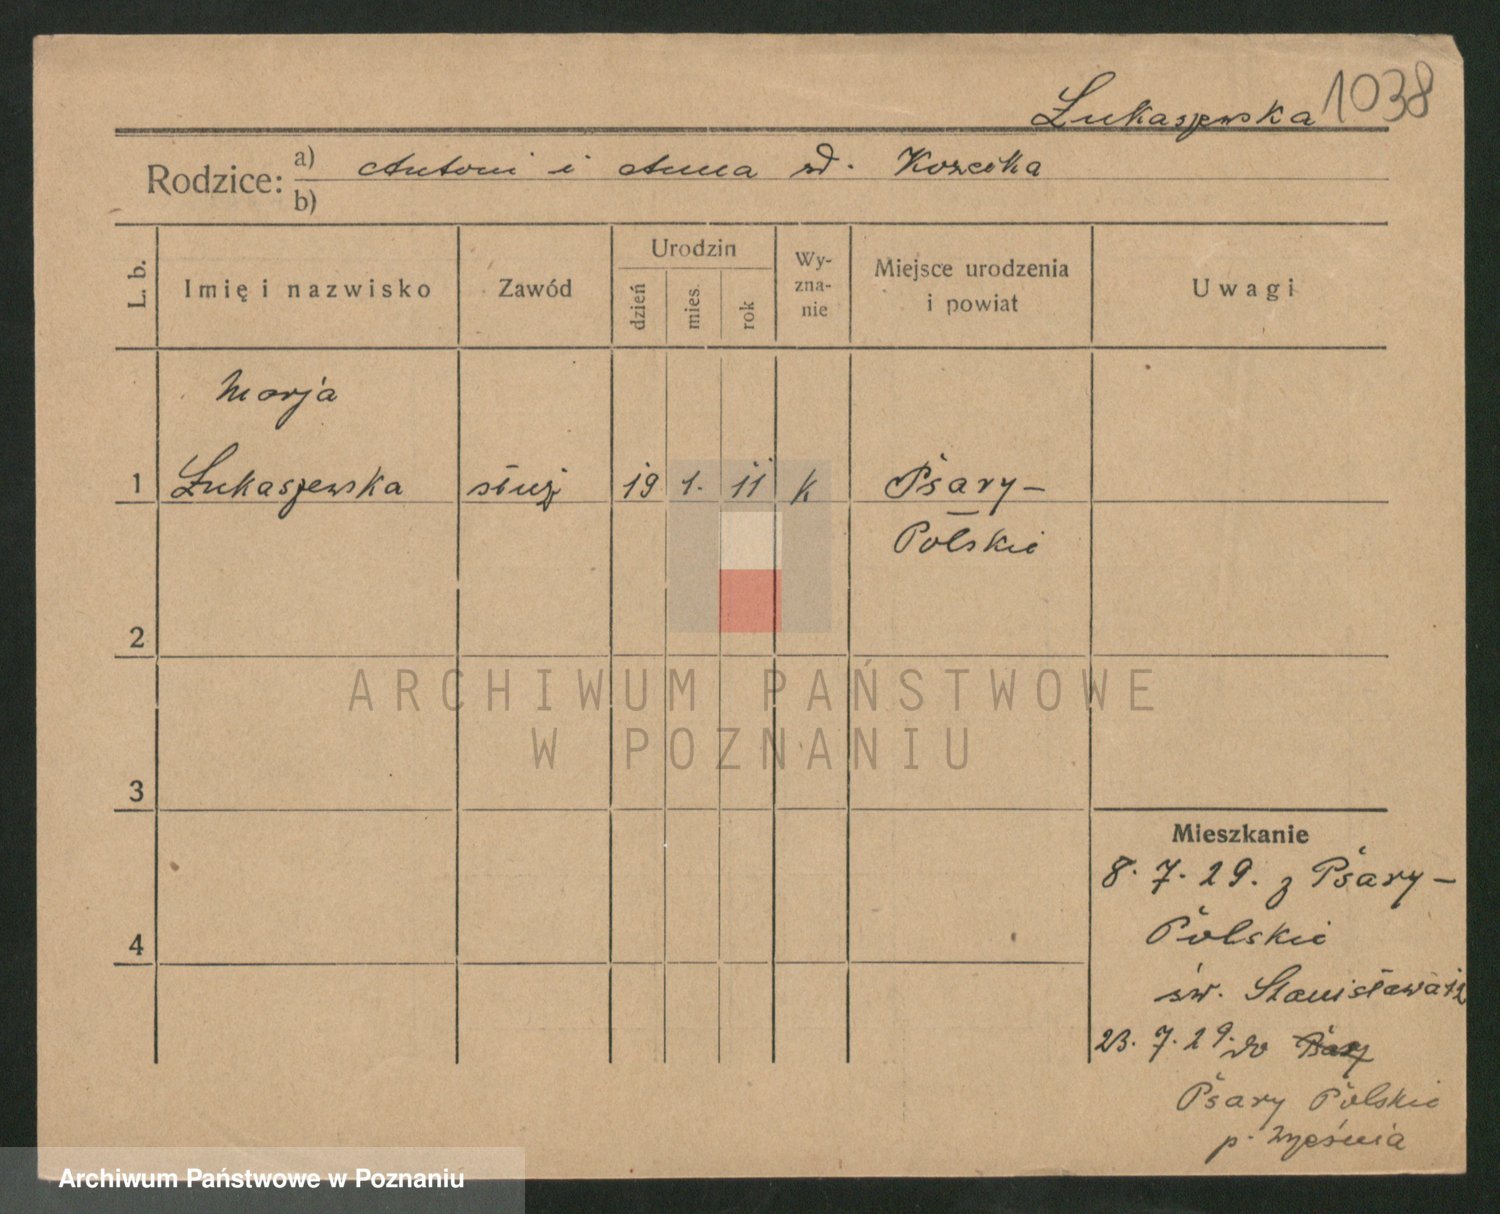 Łukaszewska 1038
Rodzice: a) Antoni i Anna zd.
b)
L. b.
Imię i nazwisko
Zawód
Urodzin
dzień
mies.
rok
Wy-
zna-
nie
Miejsce urodzenia
i powiat
Uwagi
Marja
1 Łukaszewska służ 19 1. 11 k Psary-
Polskie
2
ARCHIWUM PAŃSTWOWE
W POZNANIU
3
Mieszkanie
8. 7. 29. z Psary-
4
Polskie
św. Stanisława
23. 7. 29. do
Psary Polskie
p. Września
Archiwum Państwowe w Poznaniu